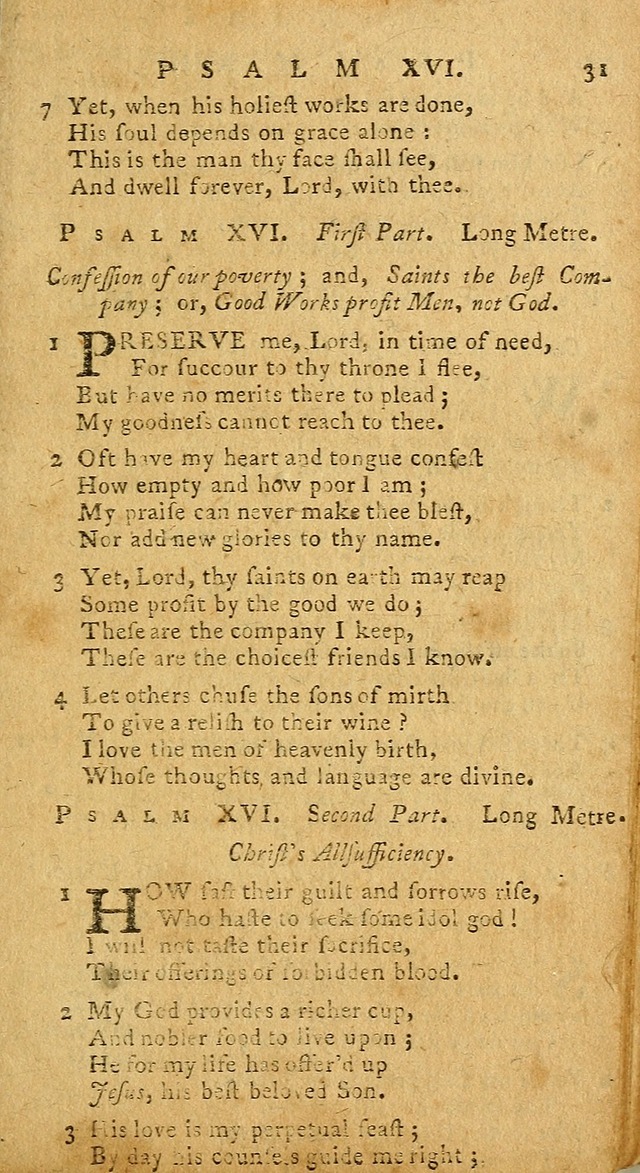 PSALM XVI. 31
7 Yet, when his holieſt works are done,
His ſoul depends on grace alone :
This is the man thy face ſhall ſee,
And dwell forever, Lord, with thee.
PSALM XVI. Firſt Part. Long Metre.
Confeſſion of our poverty ; and, Saints the beſt Com-
pany ; or, Good Works profit Men, not God.
1 PRESERVE me, Lord, in time of need,
For ſuccour to thy throne I flee,
But have no merits there to plead ;
My goodneſs cannot reach to thee.
2 Oft have my heart and tongue confeſt
How empty and how poor I am ;
My praiſe can never make thee bleſt,
Nor add new glories to thy name.
3 Yet, Lord, thy ſaints on earth may reap
Some profit by the good we do ;
Theſe are the company I keep,
Theſe are the choiceſt friends I know.
4 Let others chuſe the ſons of mirth
To give a reliſh to their wine ?
I love the men of heavenly birth,
Whoſe thoughts and language are divine.
PSALM XVI. Second Part. Long Metre.
Chriſt's Allſufficiency.
1 HOW faſt their guilt and ſorrows riſe,
Who haſte to ſeek ſome idol god !
I will not taſte their ſacrifice,
Their offerings of forbidden blood.
2 My God provides a richer cup,
And nobler food to live upon ;
He for my life has offer'd up
Jeſus, his beſt beloved Son.
3 His love is my perpetual feaſt ;
By day his counſels guide me right ;